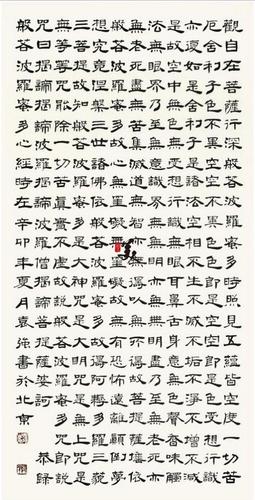 觀自在菩薩行深般若波羅蜜多時照見五蘊皆空度一切苦
厄舍利子色不異空空不異色色即是空空即是色受想行識
亦復如是舍利子是諸法空相不生不滅不垢不淨不增不減
是故空中無色無受想行識無眼耳鼻舌身意無色聲香味觸
法無眼界乃至無意識界無無明亦無無明盡乃至無老死亦
無老死盡無苦集滅道無智亦無得以無所得故菩提薩埵依
般若波羅蜜多故心無罣礙無罣礙故無有恐怖遠離顛倒夢
想究竟涅槃三世諸佛依般若波羅蜜多故得阿耨多羅三藐
三菩提故知般若波羅蜜多是大神咒是大明咒是無上咒是
無等等咒能除一切苦真實不虛故說般若波羅蜜多咒即說
咒曰揭諦揭諦波羅揭諦波羅僧揭諦菩提薩婆訶 恭錄
般若波羅蜜多心經時在辛卯年夏月袁強書於北京